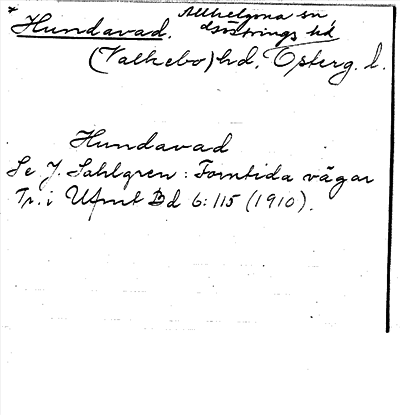 * Hundavad. Allhelgona sn,
Göstrings hd
(Valkebo) hd, Österg. l.
Hundavad
Se J. Sahlgren: Forntida vägar
Tr. i Ufmt Bd 6:115 (1910).